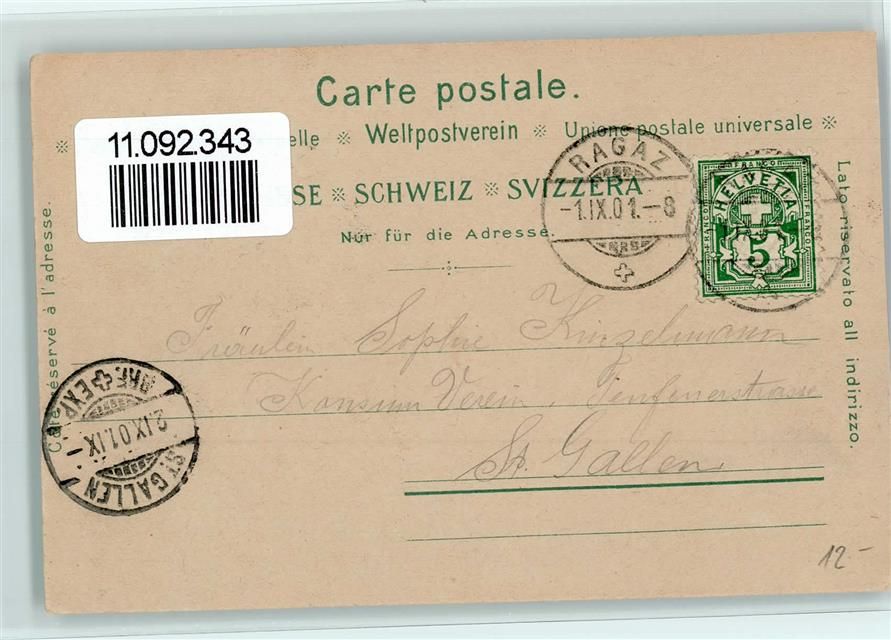 Carte postale.
11.092.343
elle ※ Weltpostverein ※ Unione postale universale ※
SE ※ SCHWEIZ ※ SVIZZERA
Nur für die Adresse.
RAGAZ
-1.IX.01.-8
FRANCO
HELVETIA
FRANCO
FRANCO
5
Lato riservato all indirizzo.
Côté réservé à l'adresse.
Fräulein Sophie Kinzelmann
Konsum Verein, Teufenerstrasse
St. Gallen
BRF. EXP.
2.IX.01.IX-
ST. GALLEN
12.-